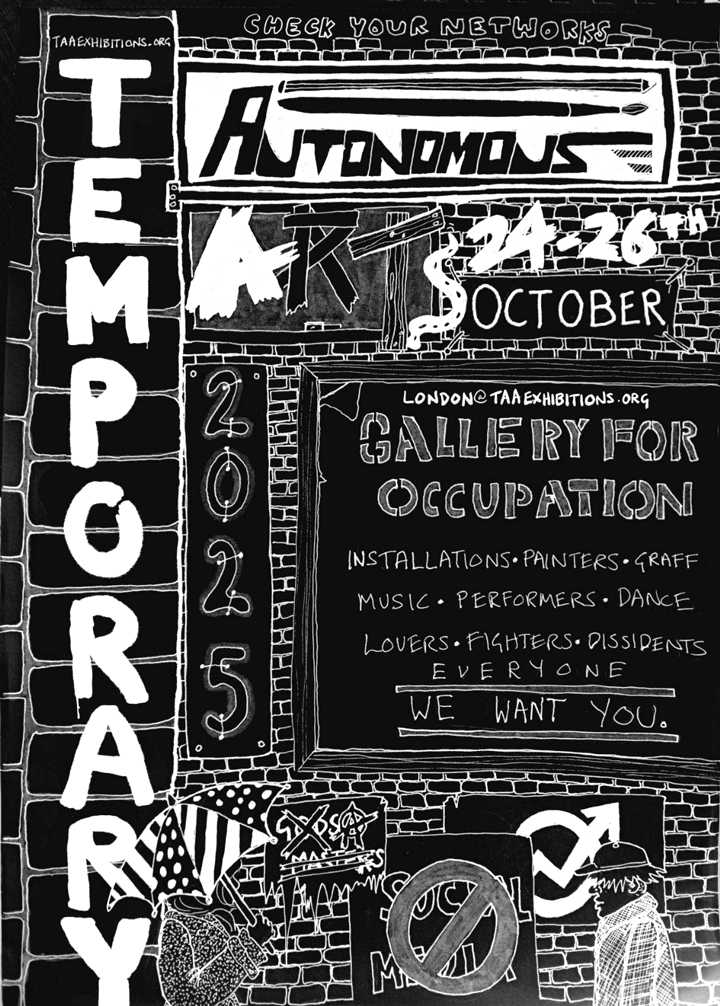 CHECK YOUR NETWORKS
TAAEXHIBITIONS.ORG
TEMPORARY
AUTONOMOUS
ART
24-26TH
OCTOBER
2025
LONDON@TAAEXHIBITIONS.ORG
GALLERY FOR
OCCUPATION
INSTALLATIONS • PAINTERS • GRAFF
MUSIC • PERFORMERS • DANCE
LOVERS • FIGHTERS • DISSIDENTS
EVERYONE
WE WANT YOU.
GODS
MASTERS
SOCIAL
MEDIA